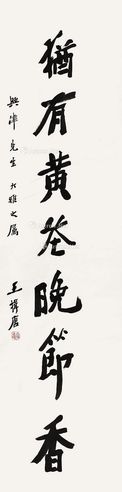 猶有黃花晚節香
興準先生大雅之屬
王揖唐